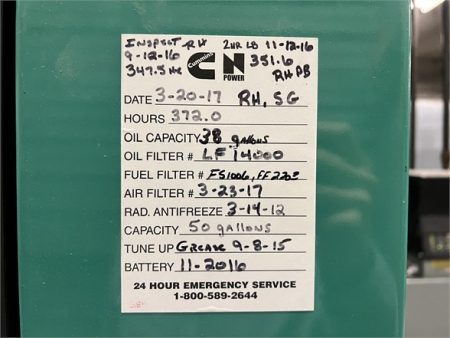 INSPECT RH
9-12-16
347.5 HR
Cummins
CN
POWER
2HR LB 11-12-16
351.6
RH PB
DATE 3-20-17 RH, SG
HOURS 372.0
OIL CAPACITY 38 gallons
OIL FILTER # LF 14000
FUEL FILTER # FS1006, FF2203
AIR FILTER # 3-23-17
RAD. ANTIFREEZE 3-14-12
CAPACITY 50 gallons
TUNE UP GREASE 9-8-15
BATTERY 11-2016
24 HOUR EMERGENCY SERVICE
1-800-589-2644